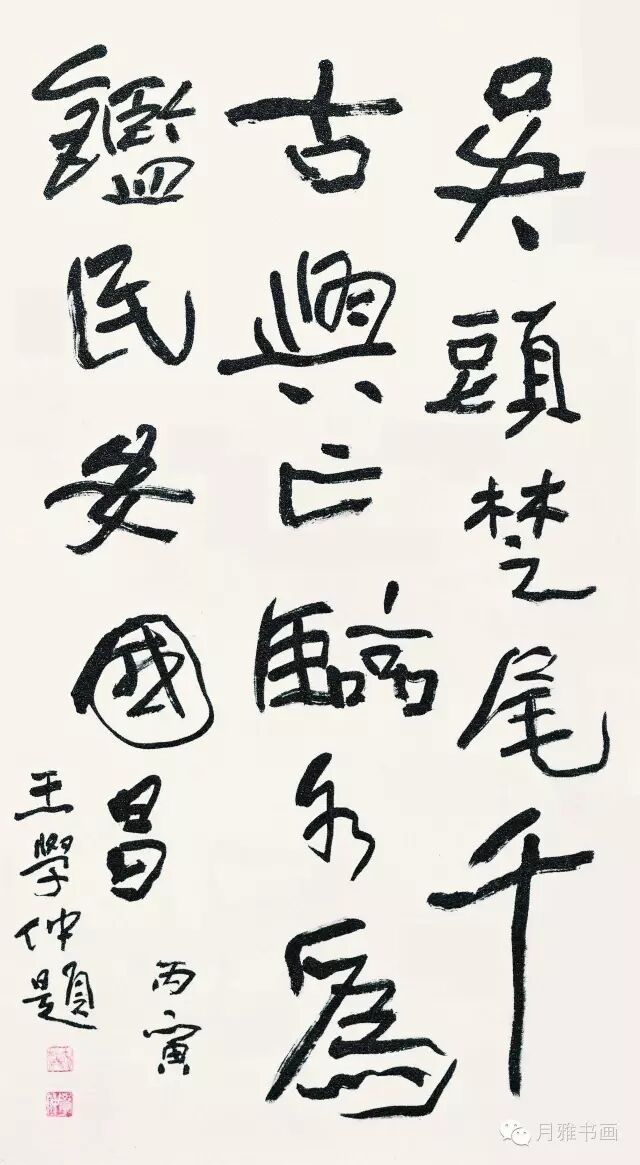 吳頭楚尾千
古興亡臨水爲
鑑民安國昌
丙寅
王學仲題
月雅书画